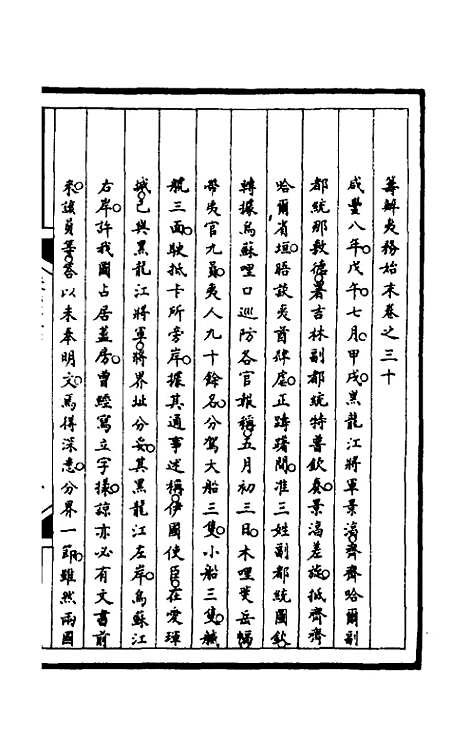 籌辦夷務始末卷之三十
咸豐八年戊午七月甲戌黑龍江將軍景淳齊齊哈爾副
都統那敷德署吉林副都統特普欽奏景淳差旋抵齊齊
哈爾省垣晤談夷酋肆虐正躊躇間准三姓副都統圖欽
轉據烏蘇哩口巡防各官報稱五月初三日木哩斐岳幅
帶夷官九員夷人九十餘名分駕大船三隻小船三隻艤
艤三面駛抵卡所旁岸據其通事述稱伊國使臣在愛琿
城已與黑龍江將軍將界址分妥其黑龍江左岸烏蘇江
右岸許我國占居蓋房曾經寫立字樣諒亦必有文書前
來該員等答以未奉明文焉得深悉分界一節雖然兩國